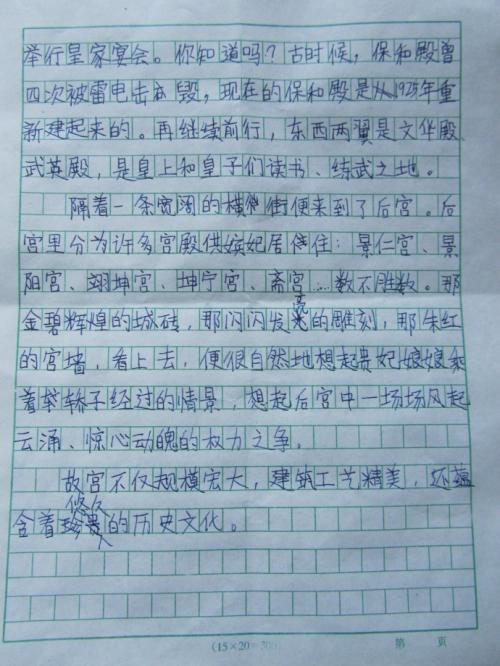 举行皇家宴会。你知道吗?古时候,保和殿曾
四次被雷电击毁,现在的保和殿是从1925年重
新建起来的。再继续前行,东西两翼是文华殿
武英殿,是皇上和皇子们读书、练武之地。
隔着一条宽阔的横街便来到了后宫。后
宫里分为许多宫殿供嫔妃居住:景仁宫、景
阳宫、翊坤宫、坤宁宫、斋宫……数不胜数。那
金碧辉煌的城砖,那闪闪发亮的雕刻,那朱红
的宫墙,看上去,便很自然地想起贵妃娘娘乘
着轿子经过的情景,想起后宫中一场场风起
云涌、惊心动魄的权力之争。
故宫不仅规模宏大,建筑工艺精美,还蕴
含着悠久的历史文化。
(15×20=300)
第 页